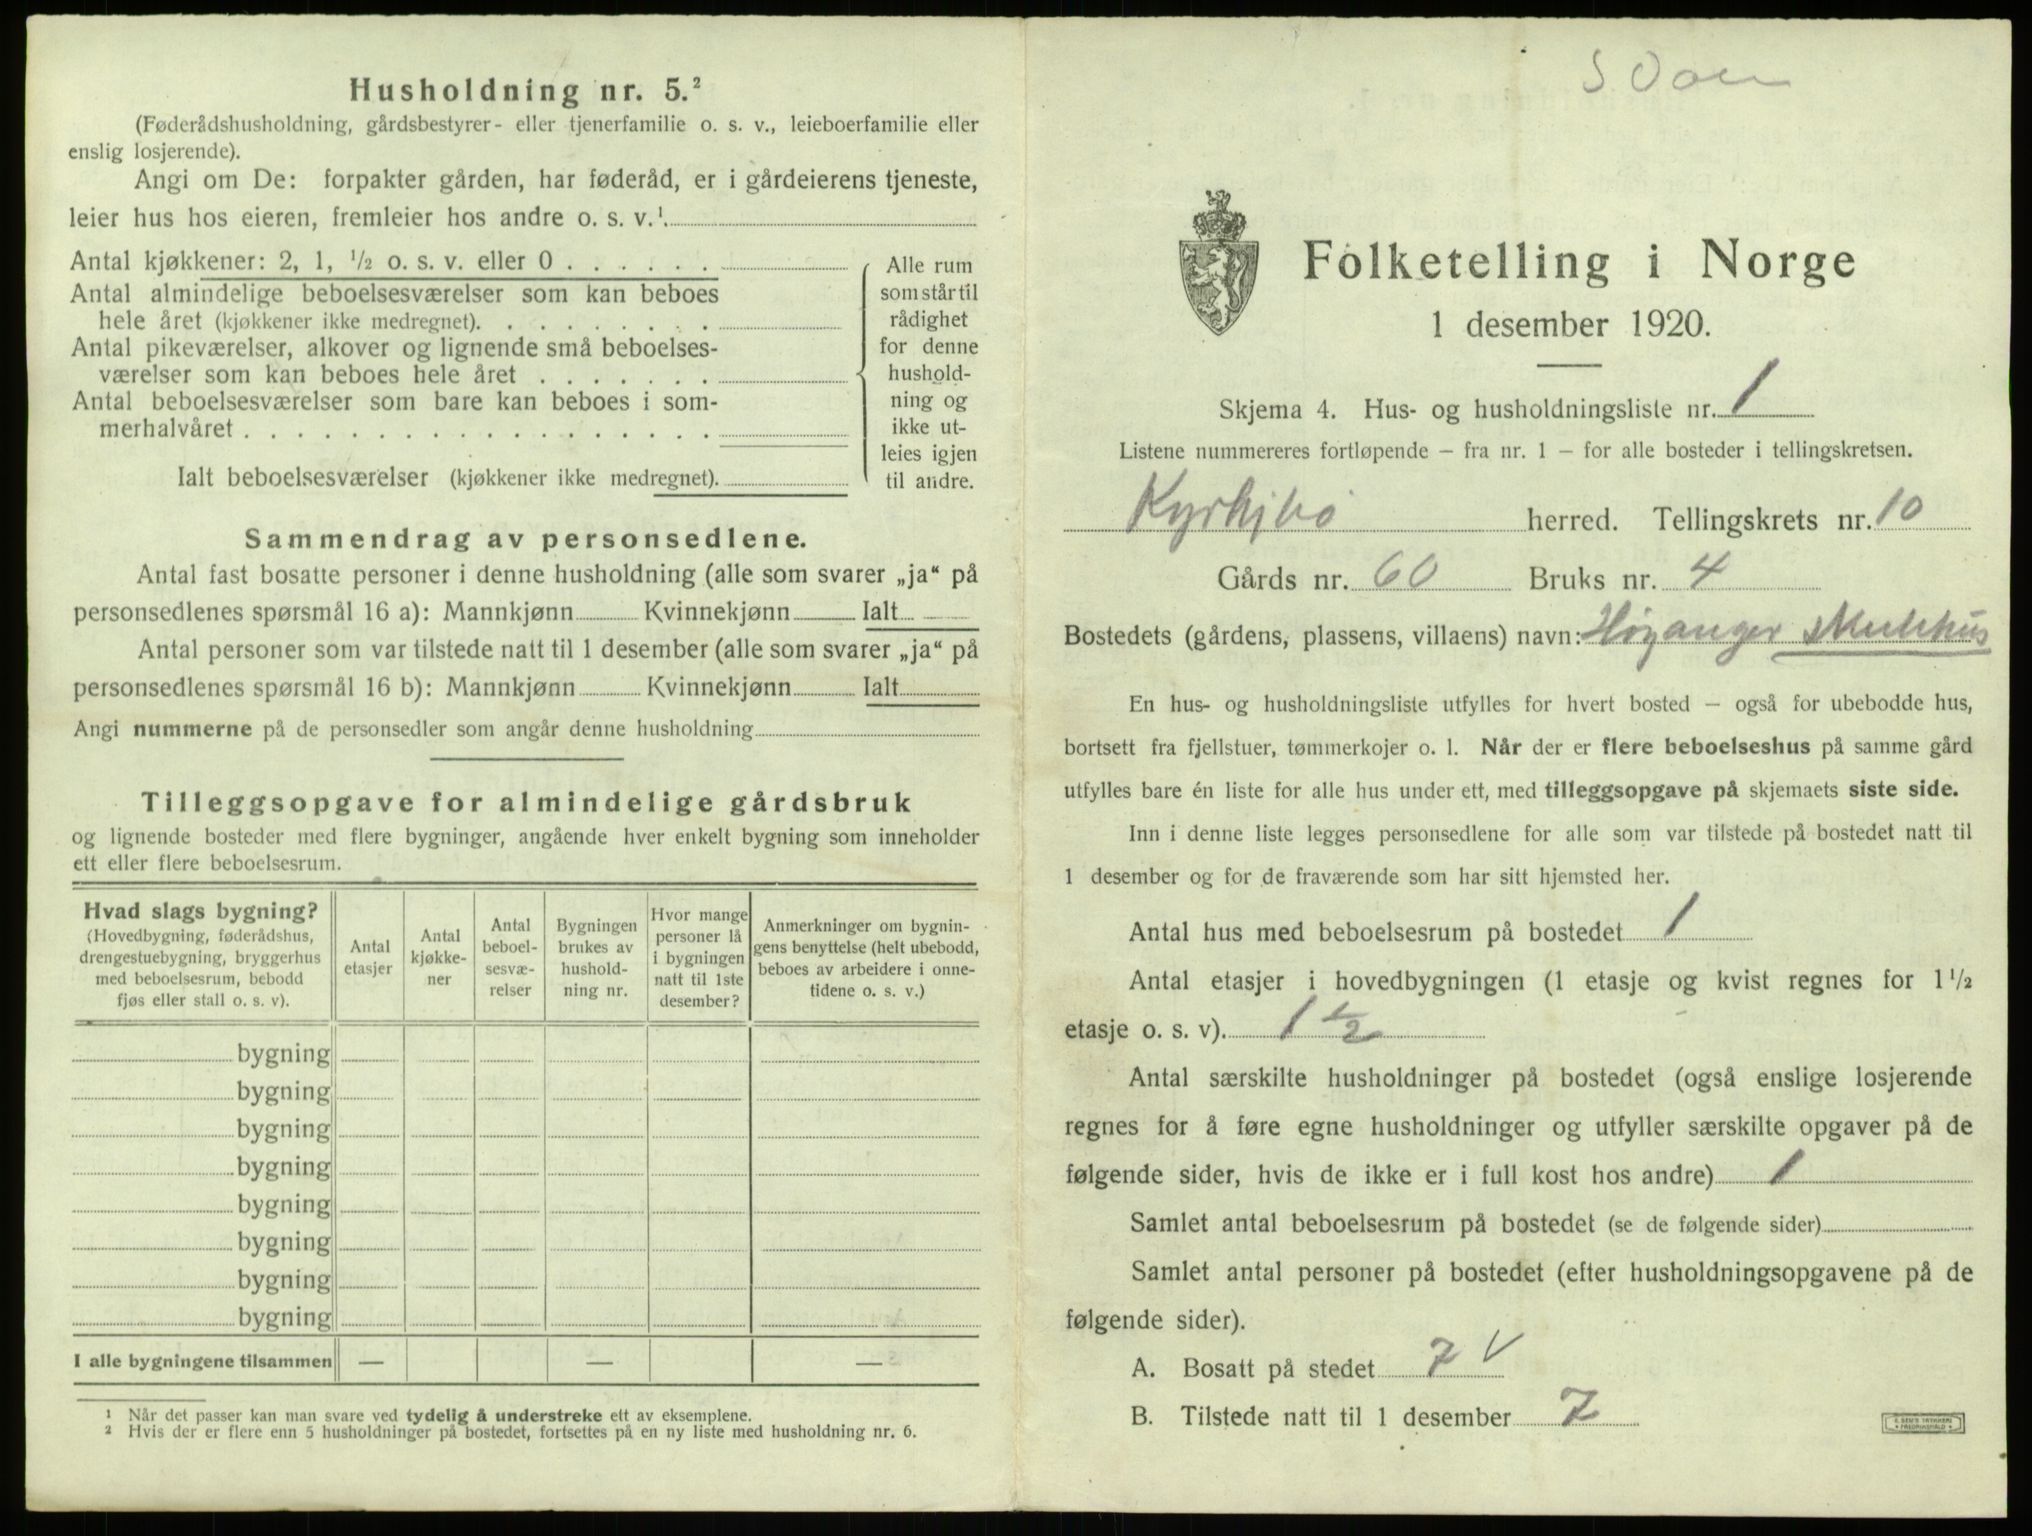 Husholdning nr. 5.²
(Føderådshusholdning, gårdsbestyrer- eller tjenerfamilie o. s. v., leieboerfamilie eller
enslig losjerende).
Angi om De: forpakter gården, har føderåd, er i gårdeierens tjeneste,
leier hus hos eieren, fremleier hos andre o. s. v.¹
Antal kjøkkener: 2, 1, ½ o. s. v. eller 0 . . . . . .
Antal almindelige beboelsesværelser som kan beboes
hele året (kjøkkener ikke medregnet). . . . . . . . .
Antal pikeværelser, alkover og lignende små beboelses-
værelser som kan beboes hele året . . . . . . .
Antal beboelsesværelser som bare kan beboes i som-
merhalvåret . . . . . . . . . . . . . . . . . .
Ialt beboelsesværelser (kjøkkener ikke medregnet).
Alle rum
som står til
rådighet
for denne
hushold-
ning og
ikke ut-
leies igjen
til andre.
Sammendrag av personsedlene.
Antal fast bosatte personer i denne husholdning (alle som svarer „ja“ på
personsedlenes spørsmål 16 a): Mannkjønn Kvinnekjønn Ialt
Antal personer som var tilstede natt til 1 desember (alle som svarer „ja“ på
personsedlenes spørsmål 16 b): Mannkjønn Kvinnekjønn Ialt
Angi nummerne på de personsedler som angår denne husholdning
Tilleggsopgave for almindelige gårdsbruk
og lignende bosteder med flere bygninger, angående hver enkelt bygning som inneholder
ett eller flere beboelsesrum.
Hvad slags bygning?
(Hovedbygning, føderådshus,
drengestuebygning, bryggerhus
med beboelsesrum, bebodd
fjøs eller stall o. s. v).
Antal
etasjer
Antal
kjøkke-
ner
Antal
beboel-
sesvæ-
relser
Bygningen
brukes av
hushold-
ning nr.
Hvor mange
personer lå
i bygningen
natt til 1ste
desember?
Anmerkninger om bygnin-
gens benyttelse (helt ubebodd,
beboes av arbeidere i onne-
tidene o. s. v.)
bygning
bygning
bygning
bygning
bygning
bygning
bygning
bygning
I alle bygningene tilsammen — — —
¹ Når det passer kan man svare ved tydelig å understreke ett av eksemplene.
² Hvis der er flere enn 5 husholdninger på bostedet, fortsettes på en ny liste med husholdning nr. 6.
Folketelling i Norge
1 desember 1920.
Skjema 4. Hus- og husholdningsliste nr. 1
Listene nummereres fortløpende – fra nr. 1 – for alle bosteder i tellingskretsen.
Kyrkjebø herred. Tellingskrets nr. 10
Gårds nr. 60 Bruks nr. 4
Bostedets (gårdens, plassens, villaens) navn: Høyanger skulehus
En hus- og husholdningsliste utfylles for hvert bosted – også for ubebodde hus,
bortsett fra fjellstuer, tømmerkojer o. l. Når der er flere beboelseshus på samme gård
utfylles bare én liste for alle hus under ett, med tilleggsopgave på skjemaets siste side.
Inn i denne liste legges personsedlene for alle som var tilstede på bostedet natt til
1 desember og for de fraværende som har sitt hjemsted her.
Antal hus med beboelsesrum på bostedet 1
Antal etasjer i hovedbygningen (1 etasje og kvist regnes for 1 ½
etasje o. s. v). 1 ½
Antal særskilte husholdninger på bostedet (også enslige losjerende
regnes for å føre egne husholdninger og utfyller særskilte opgaver på de
følgende sider, hvis de ikke er i full kost hos andre) 1
Samlet antal beboelsesrum på bostedet (se de følgende sider)
Samlet antal personer på bostedet (efter husholdningsopgavene på de
følgende sider).
A. Bosatt på stedet 7 V
B. Tilstede natt til 1 desember 7